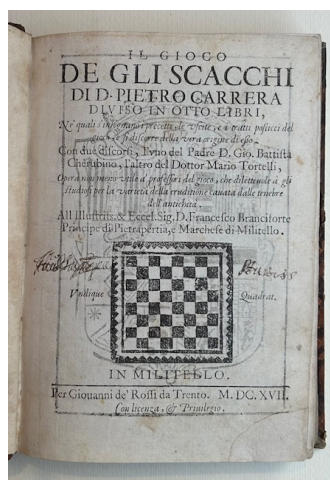 IL GIOCO
DE GLI SCACCHI
DI D. PIETRO CARRERA
DIVISO IN OTTO LIBRI,
Ne' quali s'insegnano i precetti, le uscite, e i tratti posticci del
gioco, e si discorre della vera origine di esso.
Con due discorsi, l'vno del Padre D. Gio. Battista
Cherubino, l'altro del Dottor Mario Tortelli,
Opera non meno vtile a' professori del gioco, che diletteuole à gli
studiosi per la varietà della eruditione cauata dalle tenebre
dell'antichità.
All'Illustriss. & Eccel. Sig. D. Francesco Branciforte
Principe di Pietrapertia, e Marchese di Militello.
Vndique
Quadrat.
IN MILITELLO.
Per Giouanni de' Rossi da Trento. M. DC. XVII.
Con licenza, & Priuilegio.